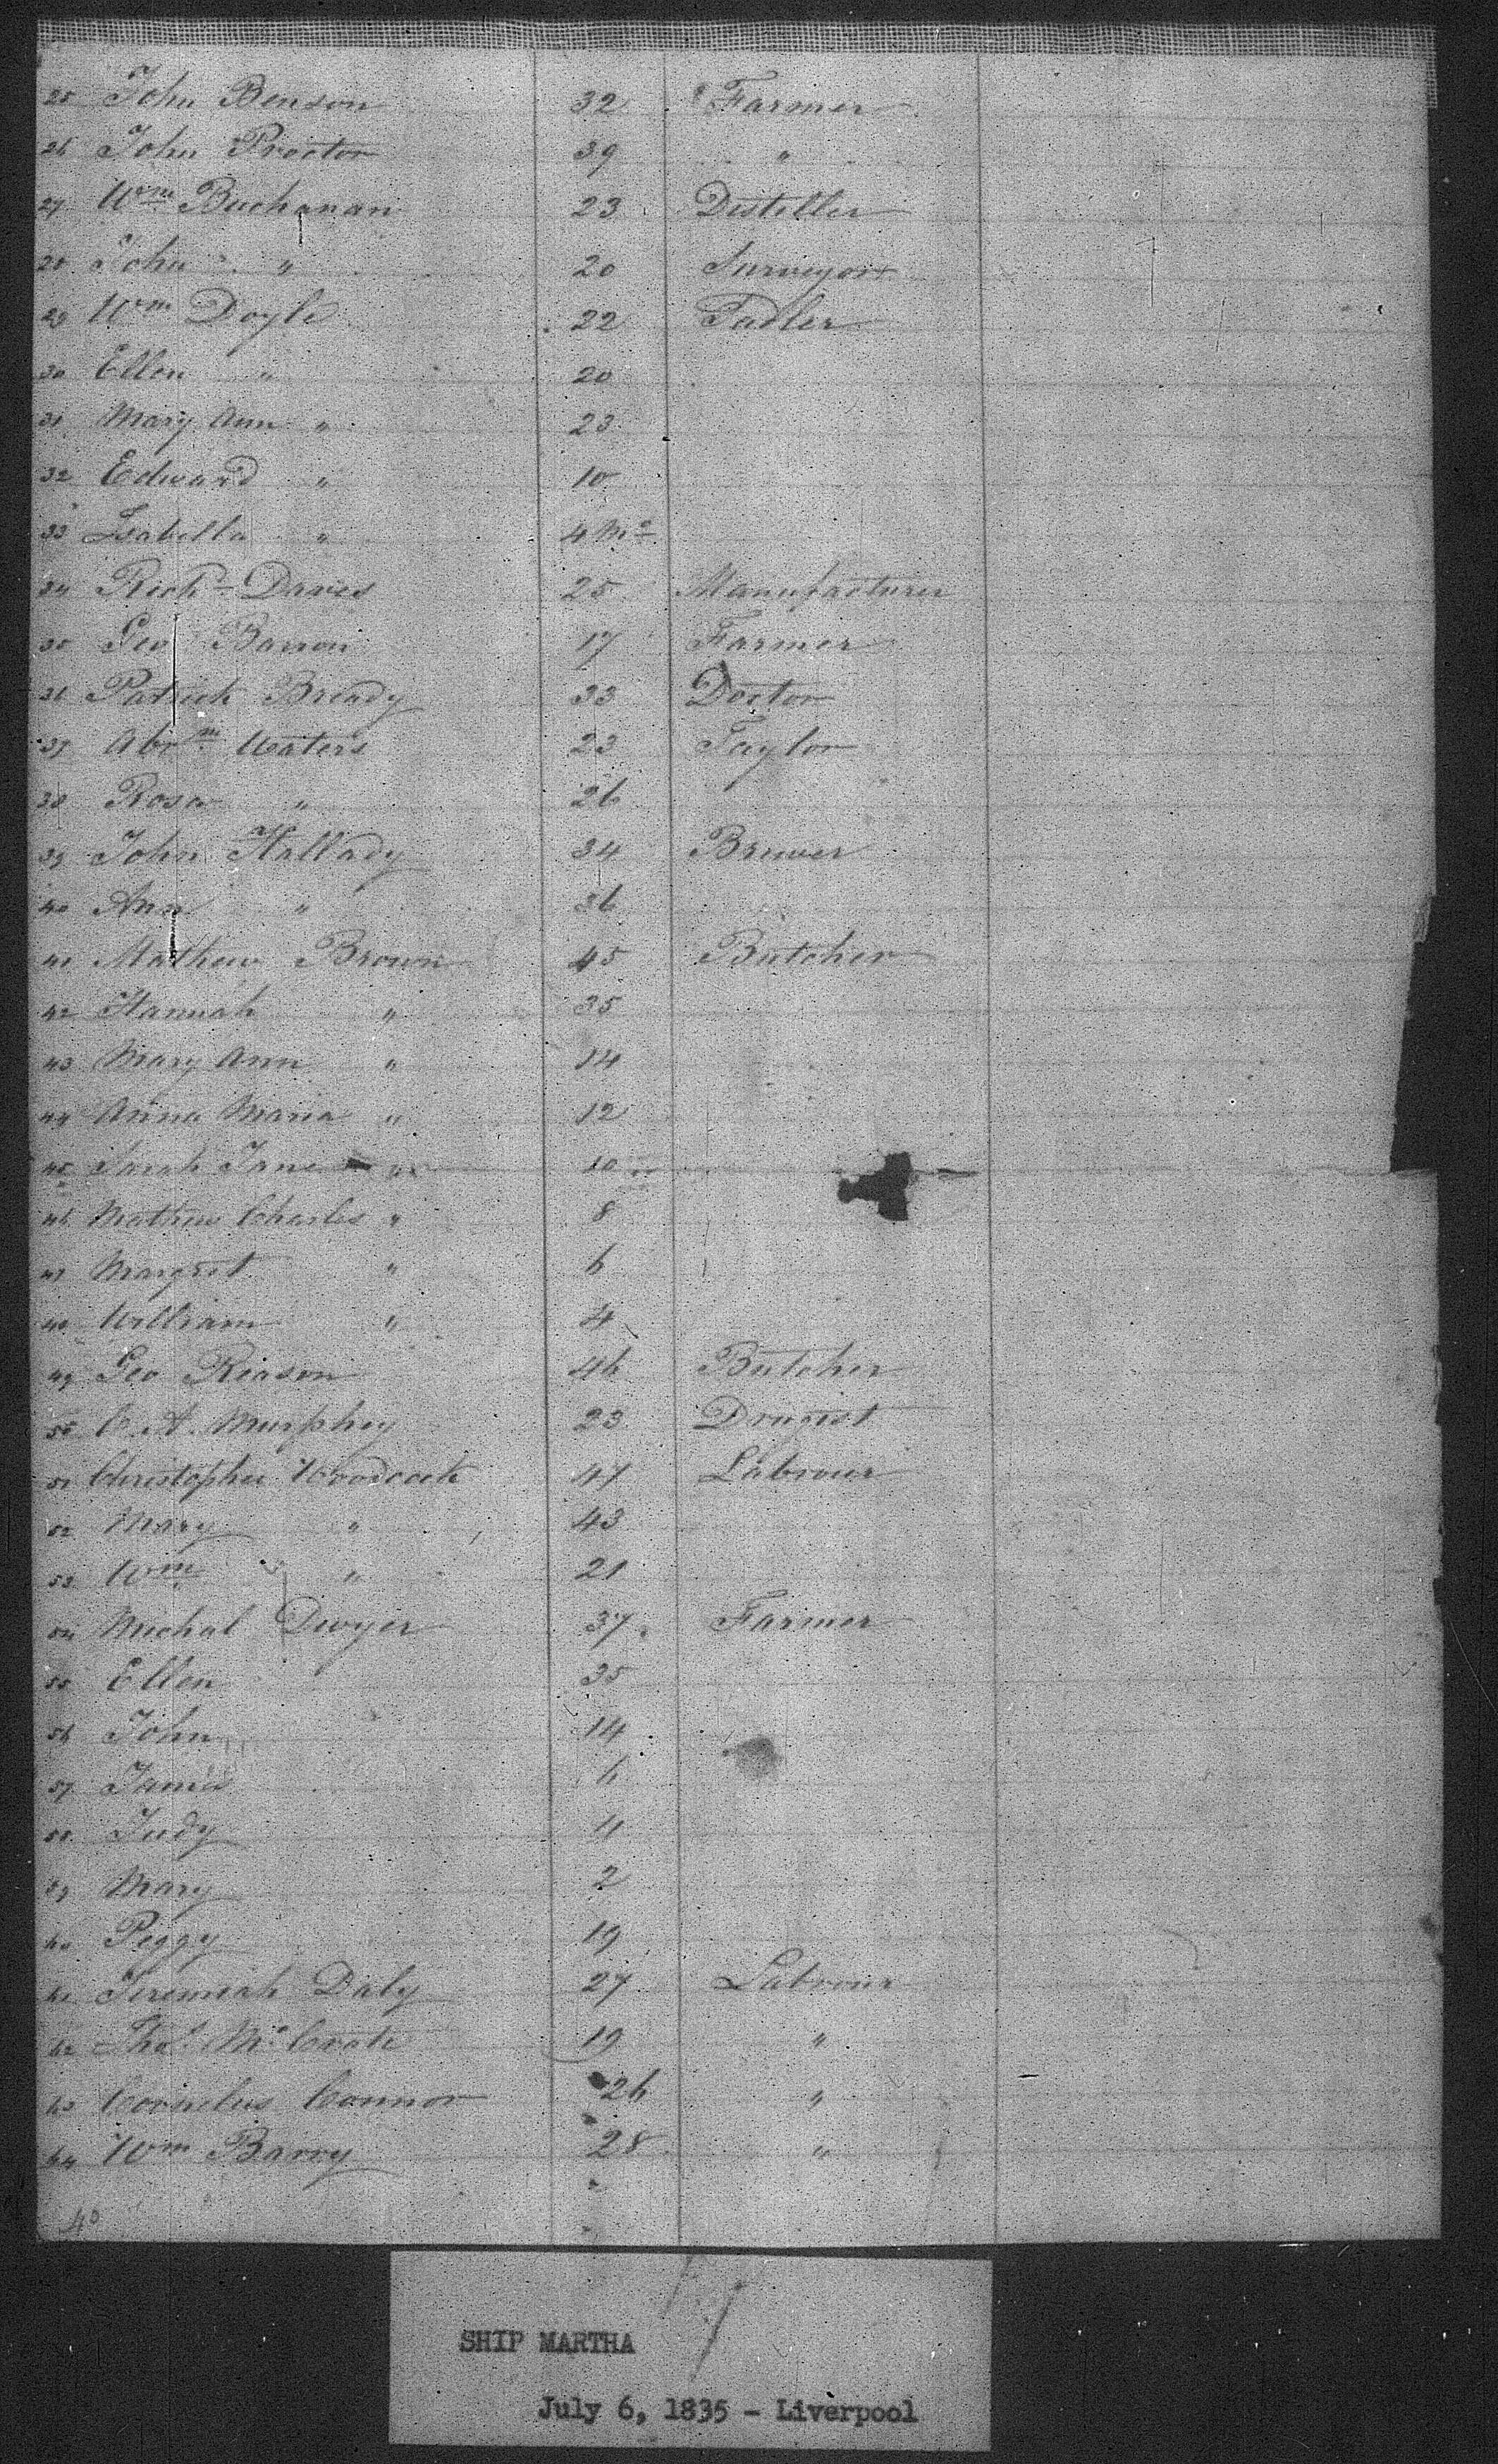 25 John Benson 32 Farmer
26 John Proctor 39 "
27 Wm Buchanan 23 Distiller
28 John " 20 Surveyor
29 Wm Doyle 22 Sadler
30 Ellen " 20
31 Mary Ann " 23
32 Edward " 10
33 Isabella " 4 Mo
34 Richd Davies 25 Manufacturer
35 Geo Barron 17 Farmer
36 Patrick Bready 33 Doctor
37 Abrm Waters 23 Taylor
38 Rosa " 26
39 John Hallady 34 Brewer
40 Ann " 36
41 Mathew Brown 45 Butcher
42 Hannah " 35
43 Mary Ann " 14
44 Anna Maria " 12
45 Sarah Jane " 10
46 Mathew Charles " 8
47 Margret " 6
48 William " 4
49 Geo Reason 46 Butcher
50 C. A. Murphey 23 Drugist
51 Christopher Woodcock 47 Labrour
52 Mary " 43
53 Wm " 21
54 Michal Dwyer 37 Farmer
55 Ellen 35
56 John 14
57 James 6
58 Judy 11
59 Mary 2
60 Peggy 19
61 Jeremiah Daly 27 Labrour
62 Thos. Mc Crate 19 "
63 Cornelius Connor 26 "
64 Wm Barry 28 "
40
SHIP MARTHA
July 6, 1835 - Liverpool